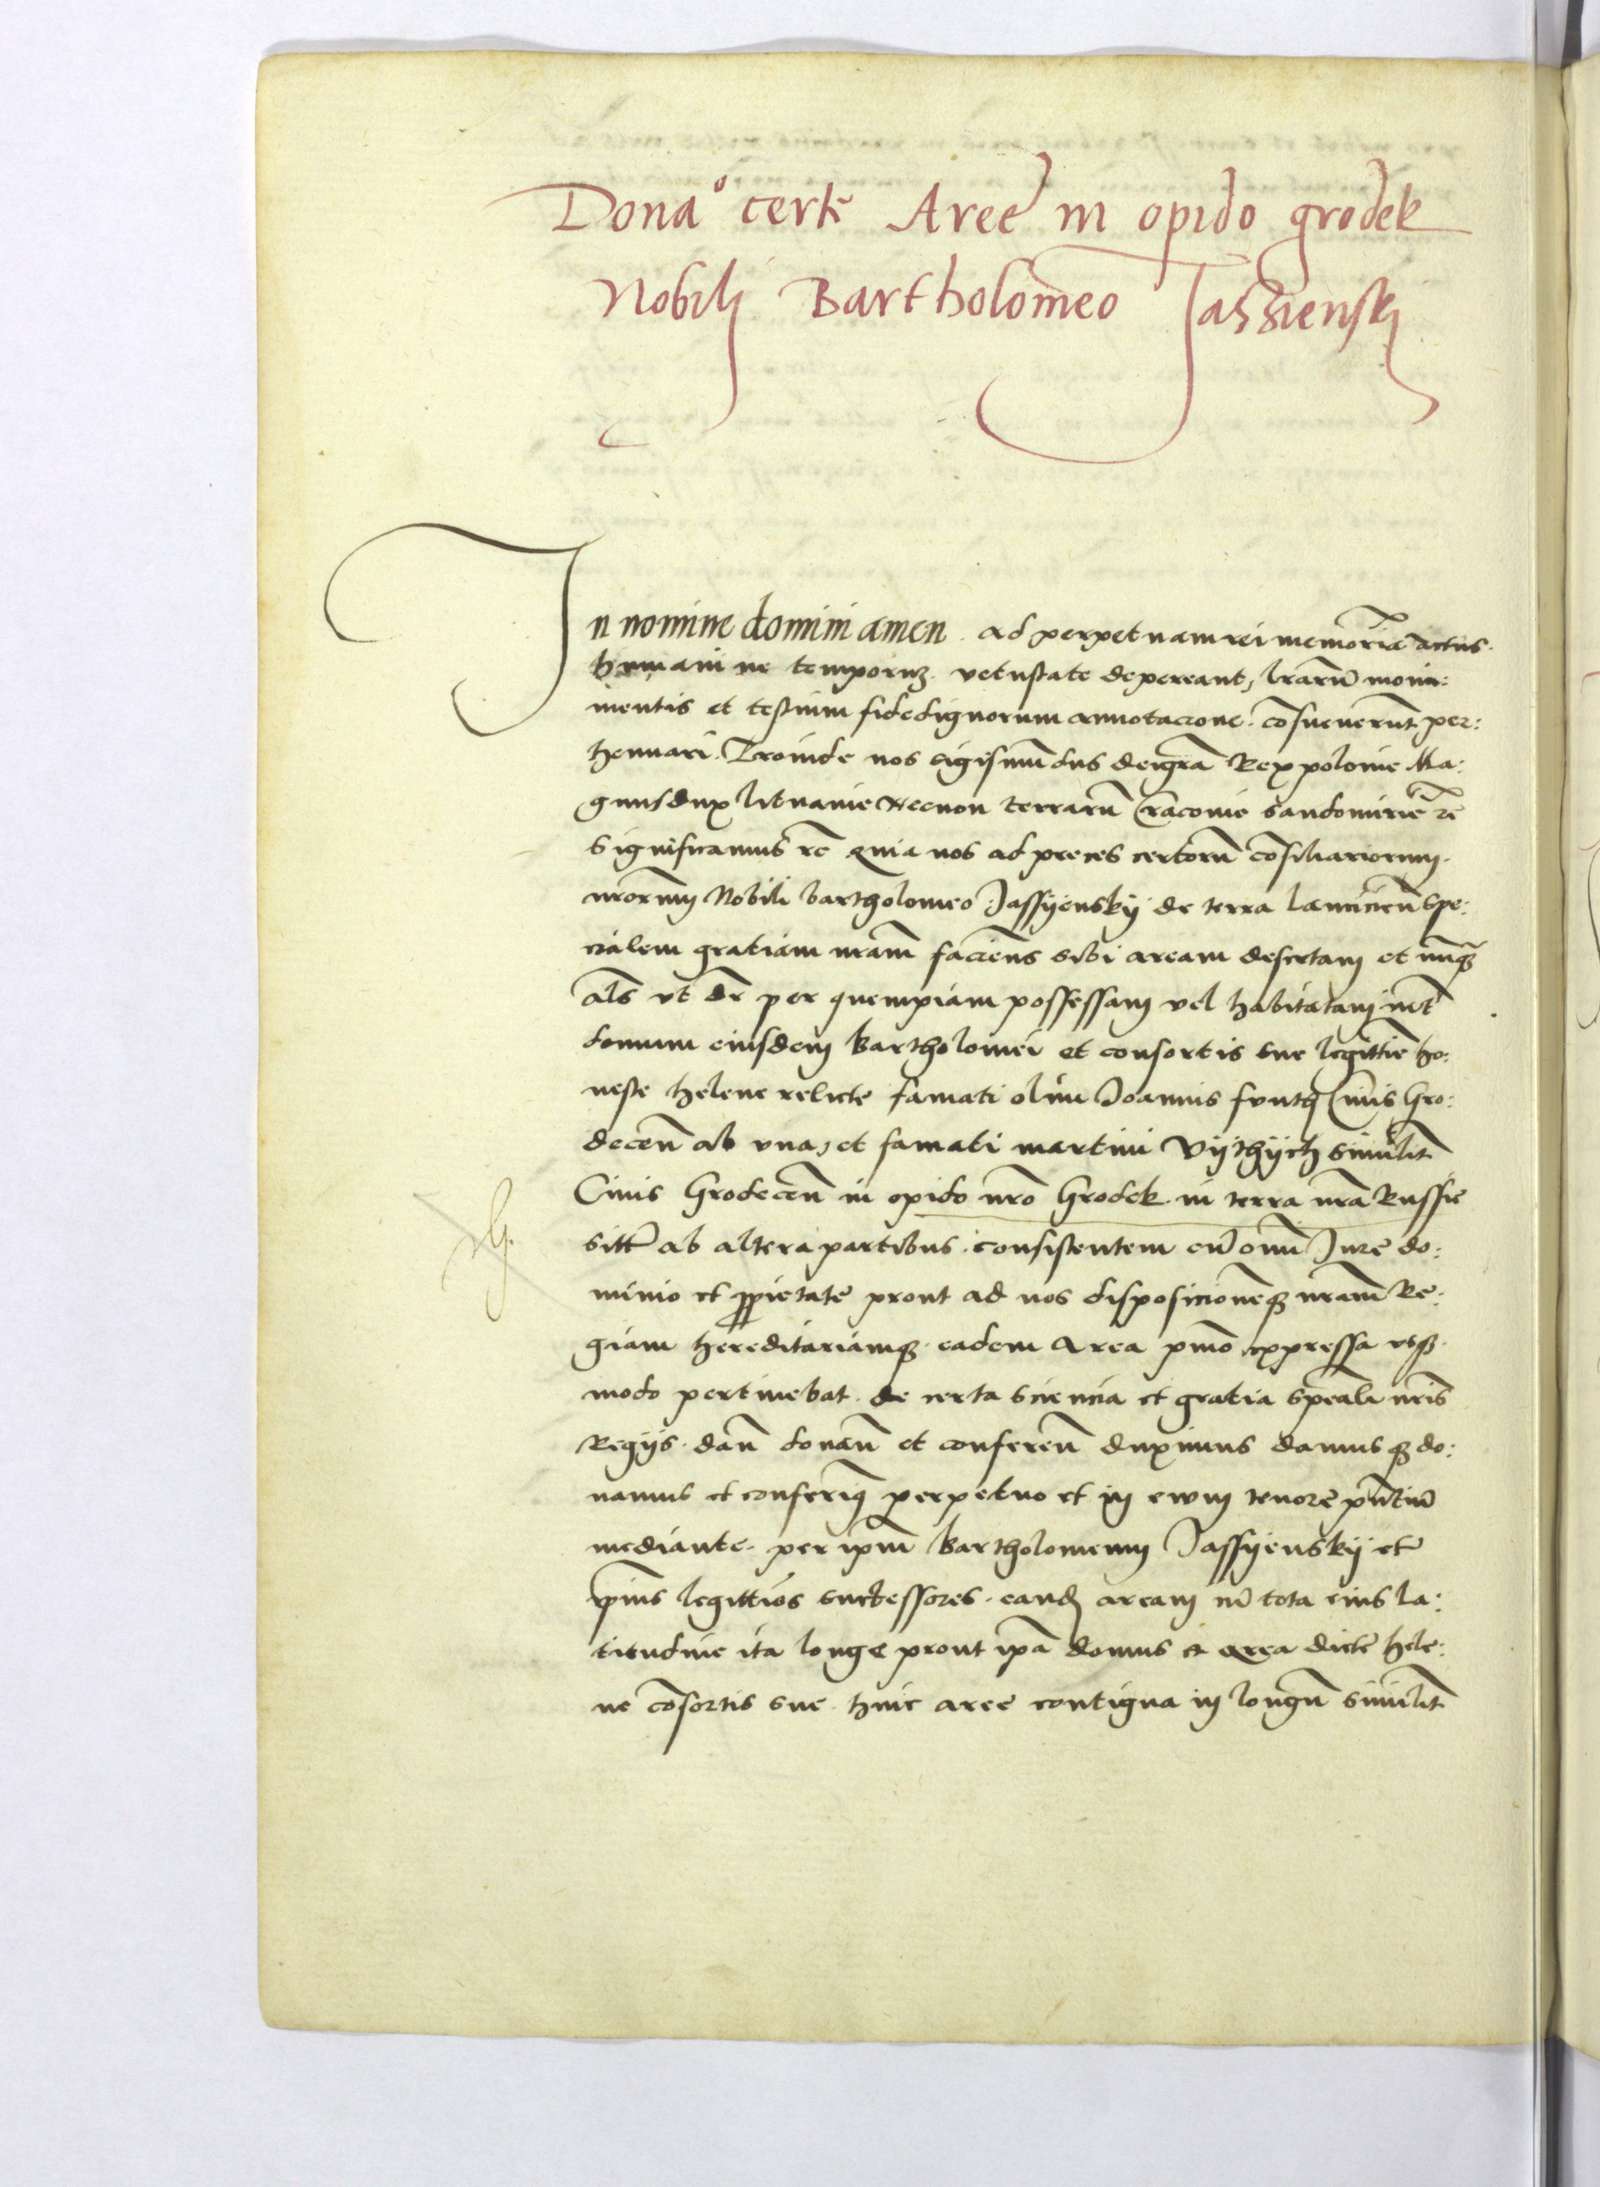 Dona° certe Aree in opido grodek
Nobilj Bartholomeo Jassienskj
In nomine domini amen. ad perpetuam rei memoriã actus
humani ne temporuȝ vetustate depereant, lrarũ moni:
mentis et testium fidedignorum annotacione cõsueuerũt per:
hennari. Proinde nos Sigismũdus dei grã Rex polonie Ma:
gnus dux litvanie Necnon terrarũ Cracouie Sandomirie ꝛc̃
Significamus ꝛc̃ Quia nos ad preces certorũ cõsiliariorum
nr̃orum Nobili bartholomeo Jassijenskij de terra Lancicieñ Spe:
cialem gratiam nr̃am facieñs sibi aream desertam et nũqȝ
als̃ vt dr̃ per quempiam possessam vel habitatam int̃
domum eiusdem Bartholomei et consortis sue legittime ho:
neste helene relicte famati olim Joannis Ciuis Gro:
deceñ ab vna, et famati martini Vijthijch similit̃
Ciuis Grodeceñ in opido nr̃o Grodek in terra nr̃a Russie
sit̃ ab altera partibus consistentem cũ omĩ Jure do:
minio et ꝓprietate prout ad nos disposicionemqȝ nr̃am Re:
giam hereditariamqȝ eadem Area p̃mo expressa vsqȝ
modo pertinebat de certa sciencia et gratia sp̃eali nr̃is
Regijs dañ donañ et confereñ duximus damusqȝ do:
namus et conferimꝯ perpetuo et in ewm tenore p̃ntiũ
mediante. per ip̃m Bartholomeum Jassijenskij et
ip̃ius legittios successores eand aream cũ tota eius la:
titudine ita longe prout ip̃a domus et area dicte hele:
ne cõsortis sue huic aree contigua in longũ similit̃